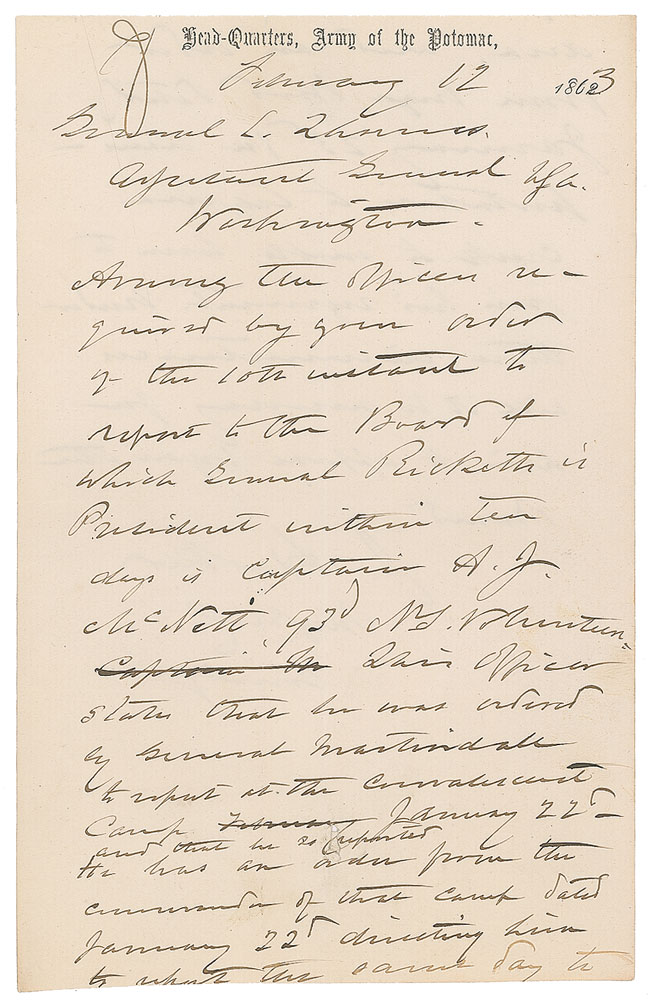 Head-Quarters, Army of the Potomac,
February 12 1863
General L. Thomas.
Adjutant General USA.
Washington.
Among the officers re-
quired by your order
of the 10th instant to
report to the Board of
which General Ricketts is
President within ten
days is Captain A. J.
McNett 93d N.Y. Volunteers
Captain Mc This officer
states that he was ordered
by General Martindale
to report at the Convalescent
Camp February January 22d
and that he so reported
He has an order from the
commander of that camp dated
January 22d directing him
to report the same day to